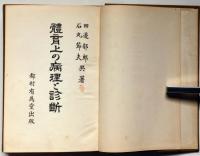 田邊郁郎
石丸節夫 共著
體育上の病理と診斷
都村有爲堂出版